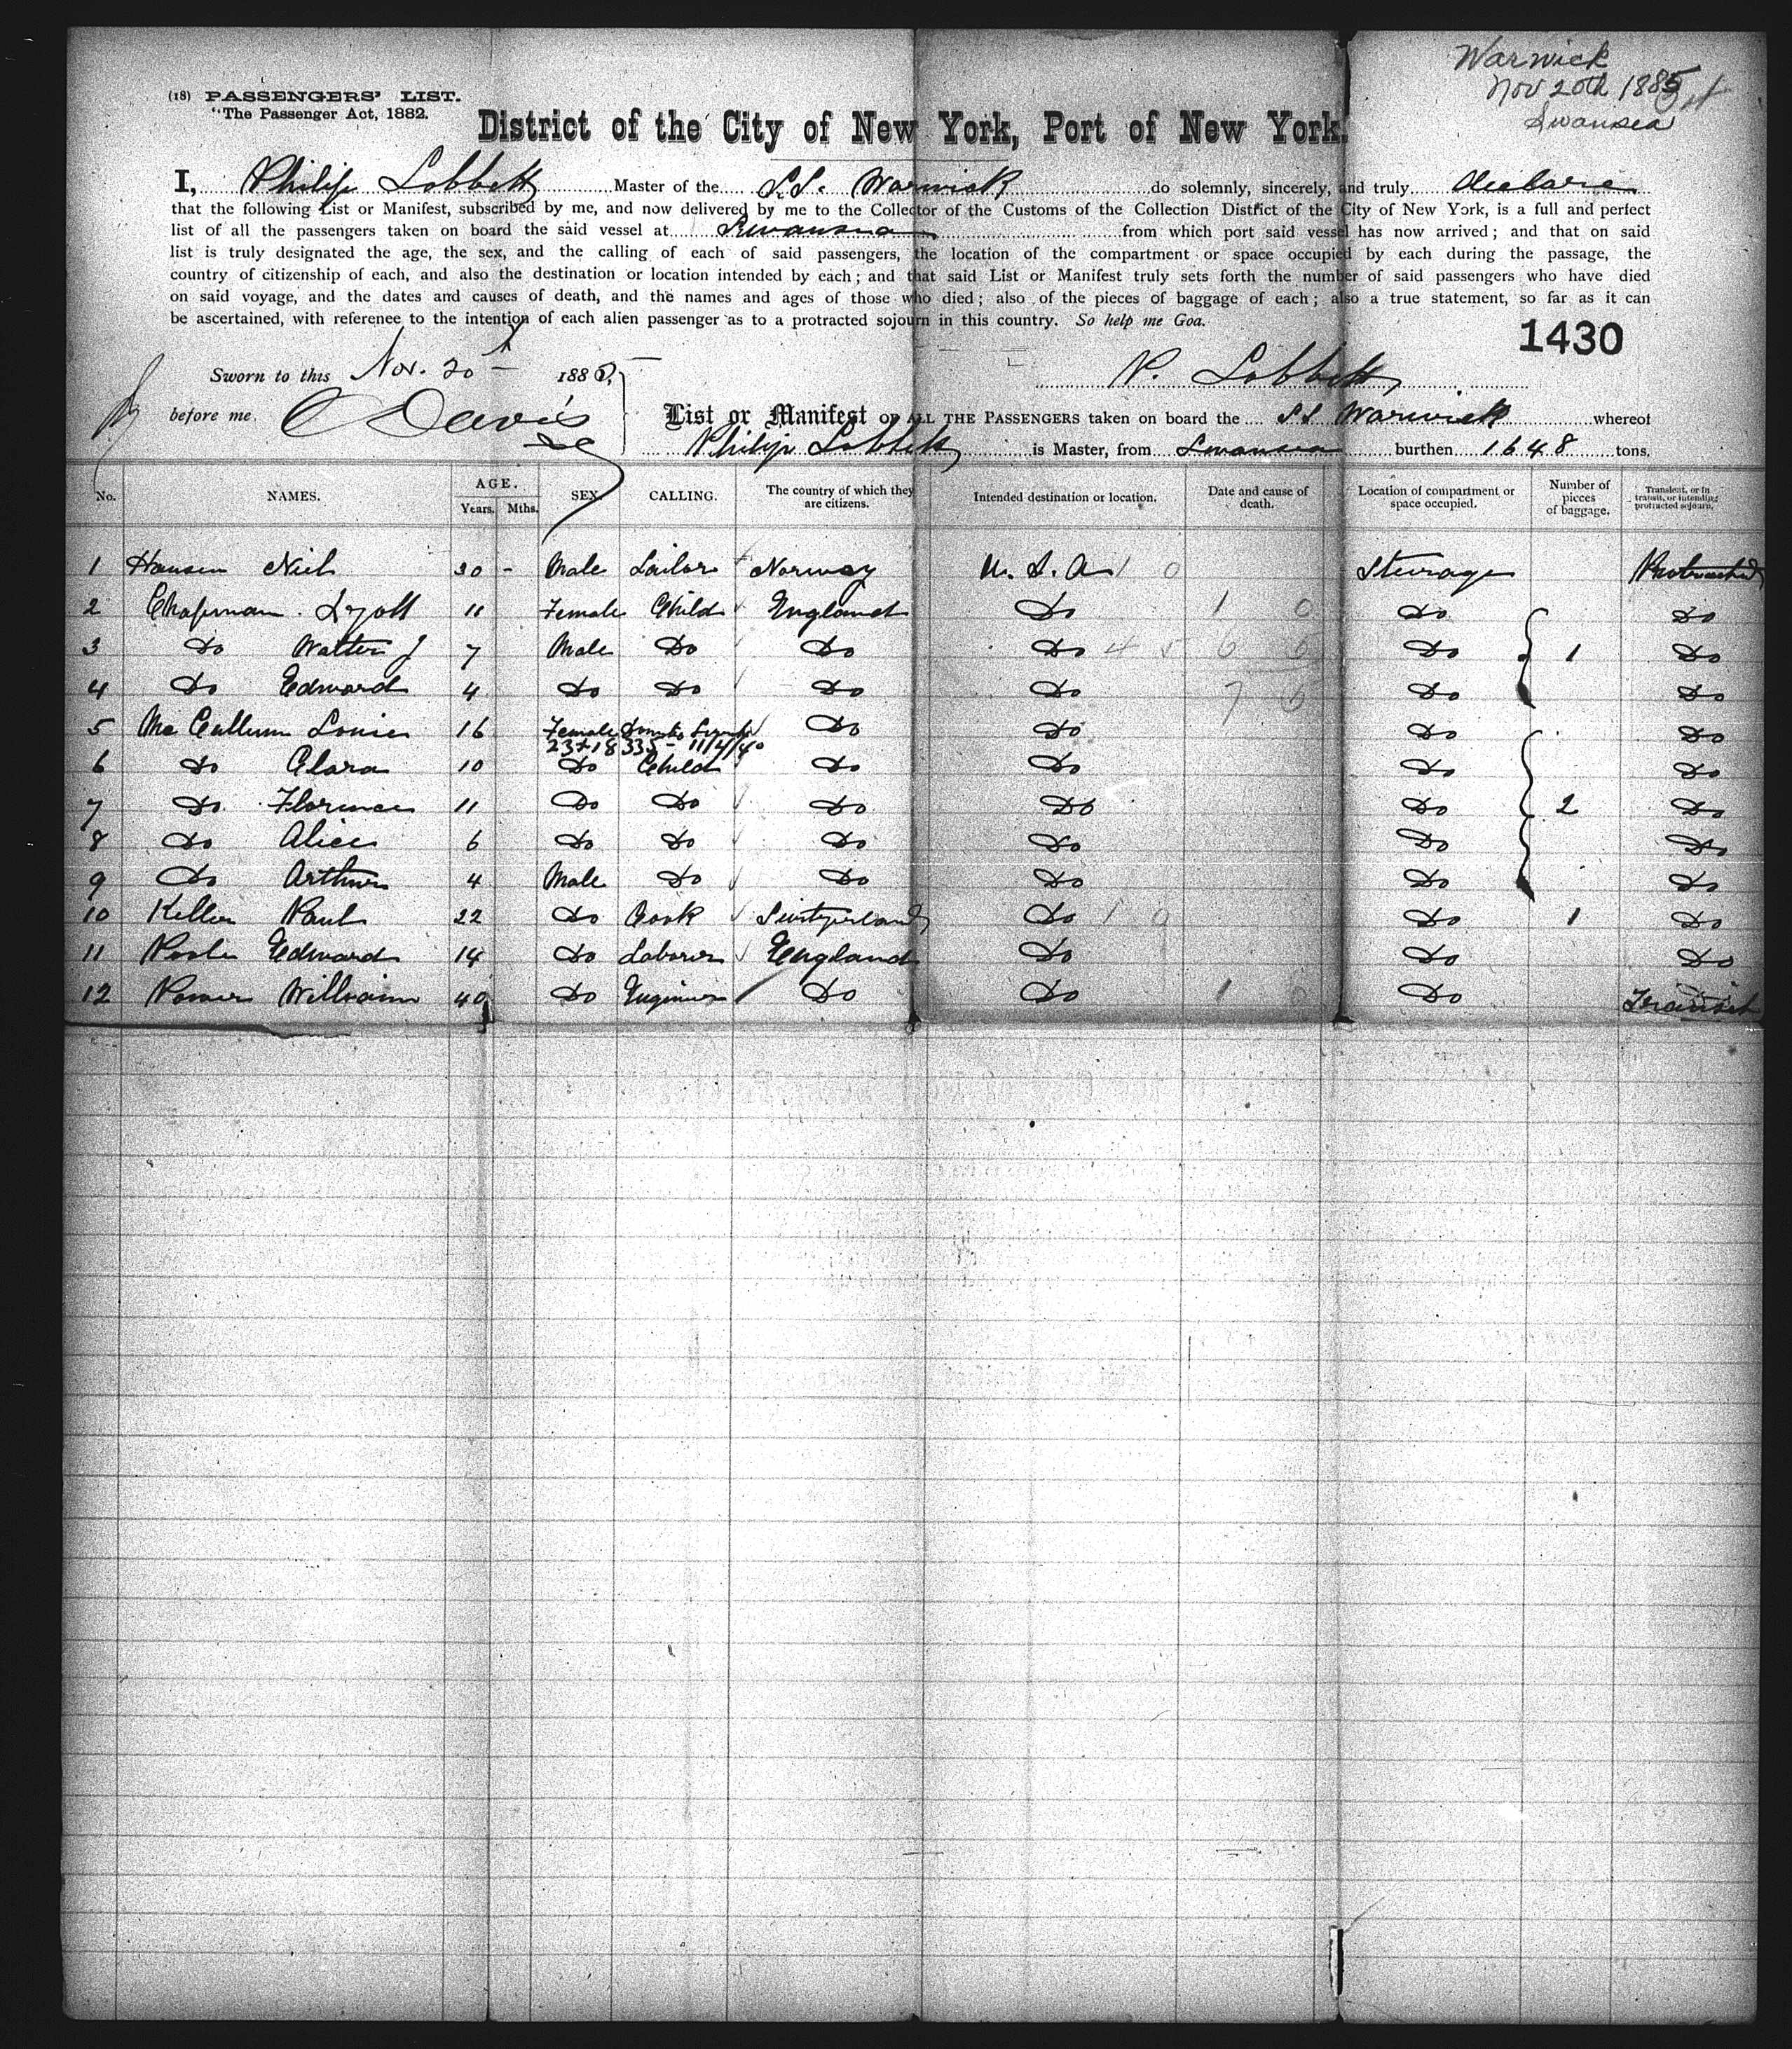 Warwick
Nov 20th 1885
Swansea
(18) PASSENGERS' LIST.
"The Passenger Act, 1882.
District of the City of New York, Port of New York.
I, Philip Lobbett Master of the S.S. Warwick do solemnly, sincerely, and truly declare
that the following List or Manifest, subscribed by me, and now delivered by me to the Collector of the Customs of the Collection District of the City of New York, is a full and perfect
list of all the passengers taken on board the said vessel at Swansea from which port said vessel has now arrived; and that on said
list is truly designated the age, the sex, and the calling of each of said passengers, the location of the compartment or space occupied by each during the passage, the
country of citizenship of each, and also the destination or location intended by each; and that said List or Manifest truly sets forth the number of said passengers who have died
on said voyage, and the dates and causes of death, and the names and ages of those who died; also of the pieces of baggage of each; also a true statement, so far as it can
be ascertained, with reference to the intention of each alien passenger as to a protracted sojourn in this country. So help me God.
1430
Sworn to this Nov. 20th 1885
P. Lobbett
before me C Davis
List or Manifest OF ALL THE PASSENGERS taken on board the SS Warwick whereof
Philip Lobbett is Master, from Swansea burthen 1648 tons.
No. NAMES. AGE. Years. Mths. SEX. CALLING. The country of which they are citizens. Intended destination or location. Date and cause of death. Location of compartment or space occupied. Number of pieces of baggage. Transient, or in transit, or intending protracted sojourn.
1 Hansen Niel 30 - Male Sailor Norway U.S.A 1 0 Steerage Protracted
2 Chapman 11 Female Child England Do 1 0 Do Do
3 Do Walter J 7 Male Do Do Do 4 5 6 6 Do 1 Do
4 Do Edward 4 Do Do Do Do 7 6 Do Do
5 McCullum Louie 16 Female Domestic Servt Do Do Do Do
23+18335 - 11/4/40
6 Do Clara 10 Do Child Do Do Do Do
7 Do Florence 11 Do Do Do Do Do 2 Do
8 Do Alice 6 Do Do Do Do Do Do
9 Do Arthur 4 Male Do Do Do Do Do
10 Keller Paul 22 Do Cook Switzerland Do 1 0 Do 1 Do
11 Poole Edward 14 Do Laborer England Do Do Do
12 Power William 40 Do Engineer Do Do 1 0 Do Transit